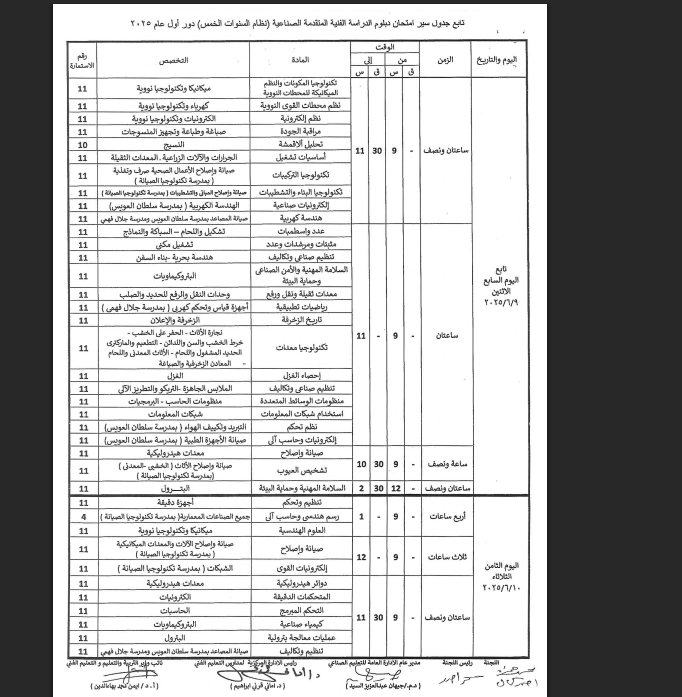 تابع جدول سير امتحان دبلوم الدراسة الفنية المتقدمة الصناعية (نظام السنوات الخمس) دور أول عام ٢٠٢٥
اليوم والتاريخ الزمن الوقت المادة التخصص رقم الاستمارة
من إلى
ق س ق س
تابع اليوم السابع الاثنين ٢٠٢٥/٦/٩
ساعتان ونصف - 9 30 11
تكنولوجيا المكونات والنظم الميكانيكية للمحطات النووية ميكانيكا وتكنولوجيا نووية 11
نظم محطات القوى النووية كهرباء وتكنولوجيا نووية 11
نظم إلكترونية الكترونيات وتكنولوجيا نووية 11
مراقبة الجودة صباغة وطباعة وتجهيز المنسوجات 11
تحليل ألاقمشة النسيج 10
أساسيات تشغيل الجرارات والآلات الزراعية ـ المعدات الثقيلة 11
تكنولوجيا التركيبات صيانة وإصلاح الأعمال الصحية صرف وتغذية ( بمدرسة تكنولوجيا الصيانة ) 11
تكنولوجيا البناء والتشطيبات صيانة وإصلاح المبانى والتشطيبات ( بمدرسة تكنولوجيا الصيانة ) 11
إلكترونيات صناعية الهندسة الكهربية ( بمدرسة سلطان العويس) 11
هندسة كهربية صيانة المصاعد بمدرسة سلطان العويس ومدرسة جلال فهمي 11
ساعتان - 9 - 11
عدد واسطمبات تشكيل واللحام – السباكة والنماذج 11
مثبتات ومرشدات وعدد تشغيل مكنى 11
تنظيم صناعى وتكاليف هندسة بحرية -بناء السفن 11
السلامة المهنية والأمن الصناعى وحماية البيئة البتروكيماويات 11
معدات ثقيلة ونقل ورفع وحدات النقل والرفع للحديد والصلب 11
رياضيات تطبيقية أجهزة قياس وتحكم كهربى ( بمدرسة جلال فهمى ) 11
تاريخ الزخرفة الزخرفة والإعلان 11
تكنولوجيا معدات نجارة الأثاث - الحفر على الخشب - خرط الخشب والسن واللدائن - التطعيم والماركترى الحديد المشغول واللحام - الأثاث المعدنى واللحام - المعادن الزخرفية والصياغة 11
إحصاء الغزل الغزل 11
تنظيم صناعى وتكاليف الملابس الجاهزة -التريكو والتطريز الآلى 11
منظومات الوسائط المتعددة منظومات الحاسب - البرمجيات 11
استخدام شبكات المعلومات شبكات المعلومات 11
نظم تحكم التبريد وتكييف الهواء ( بمدرسة سلطان العويس) 11
إلكترونيات وحاسب آلى صيانة الأجهزة الطبية ( بمدرسة سلطان العويس) 11
ساعة ونصف - 9 30 10
صيانة وإصلاح معدات هيدروليكية 11
تشخيص العيوب صيانة وإصلاح الأثاث ( الخشبى -المعدنى ) (بمدرسة تكنولوجيا الصيانة ) 11
ساعتان ونصف - 12 30 2 السلامة المهنية وحماية البيئة البتـــرول 11
اليوم الثامن الثلاثاء ٢٠٢٥/٦/١٠
أربع ساعات - 9 - 1
تنظيم وتحكم أجهزة دقيقة 11
رسم هندسى وحاسب آلى جميع الصناعات المعمارية( بمدرسة تكنولوجيا الصيانة ) 4
ثلاث ساعات - 9 - 12
العلوم الهندسية ميكانيكا وتكنولوجيا نووية 11
صيانة وإصلاح صيانة وإصلاح الآلات والمعدات الميكانيكية ( بمدرسة تكنولوجيا الصيانة ) 11
إلكترونيات القوى الشبكات ( بمدرسة تكنولوجيا الصيانة ) 11
ساعتان ونصف - 9 30 11
دوائر هيدروليكية معدات هيدروليكية 11
المتحكمات الدقيقة الكترونيات 11
التحكم المبرمج الحاسبات 11
كيمياء صناعية البتروكيماويات 11
عمليات معالجة بترولية البترول 11
تنظيم وتكاليف صيانة المصاعد بمدرسة سلطان العويس ومدرسة جلال فهمي 11
اللجنة رئيس اللجنة مدير عام الادارة العامة للتعليم الصناعي رئيس الادارة المركزية لمدارس التعليم الفني نائب وزير التربية والتعليم و التعليم الفني
(د.م./جيهان عبدالعزيز السيد ) ( د/أماني قرني ابراهيم ) ( أ.د/ ايمن نجد بهاءالدين )